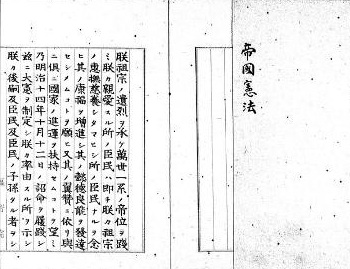 帝國憲法
朕祖宗ノ遺烈ヲ承ケ萬世一系ノ帝位ヲ踐
ミ朕カ親愛スル所ノ臣民ハ即チ朕カ祖宗
ノ惠撫慈養シタマヒシ所ノ臣民ナルヲ念
ヒ其ノ康福ヲ增進シ其ノ懿德良能ヲ發達
セシメムコトヲ願ヒ又其ノ翼贊ニ依リ與
ニ俱ニ國家ノ進運ヲ扶持セムコトヲ望ミ
乃明治十四年十月十二日ノ詔命ヲ履踐シ
茲ニ大憲ヲ制定シ朕カ率由スル所ヲ示シ
朕カ後嗣及臣民及臣民ノ子孫タル者ヲシ